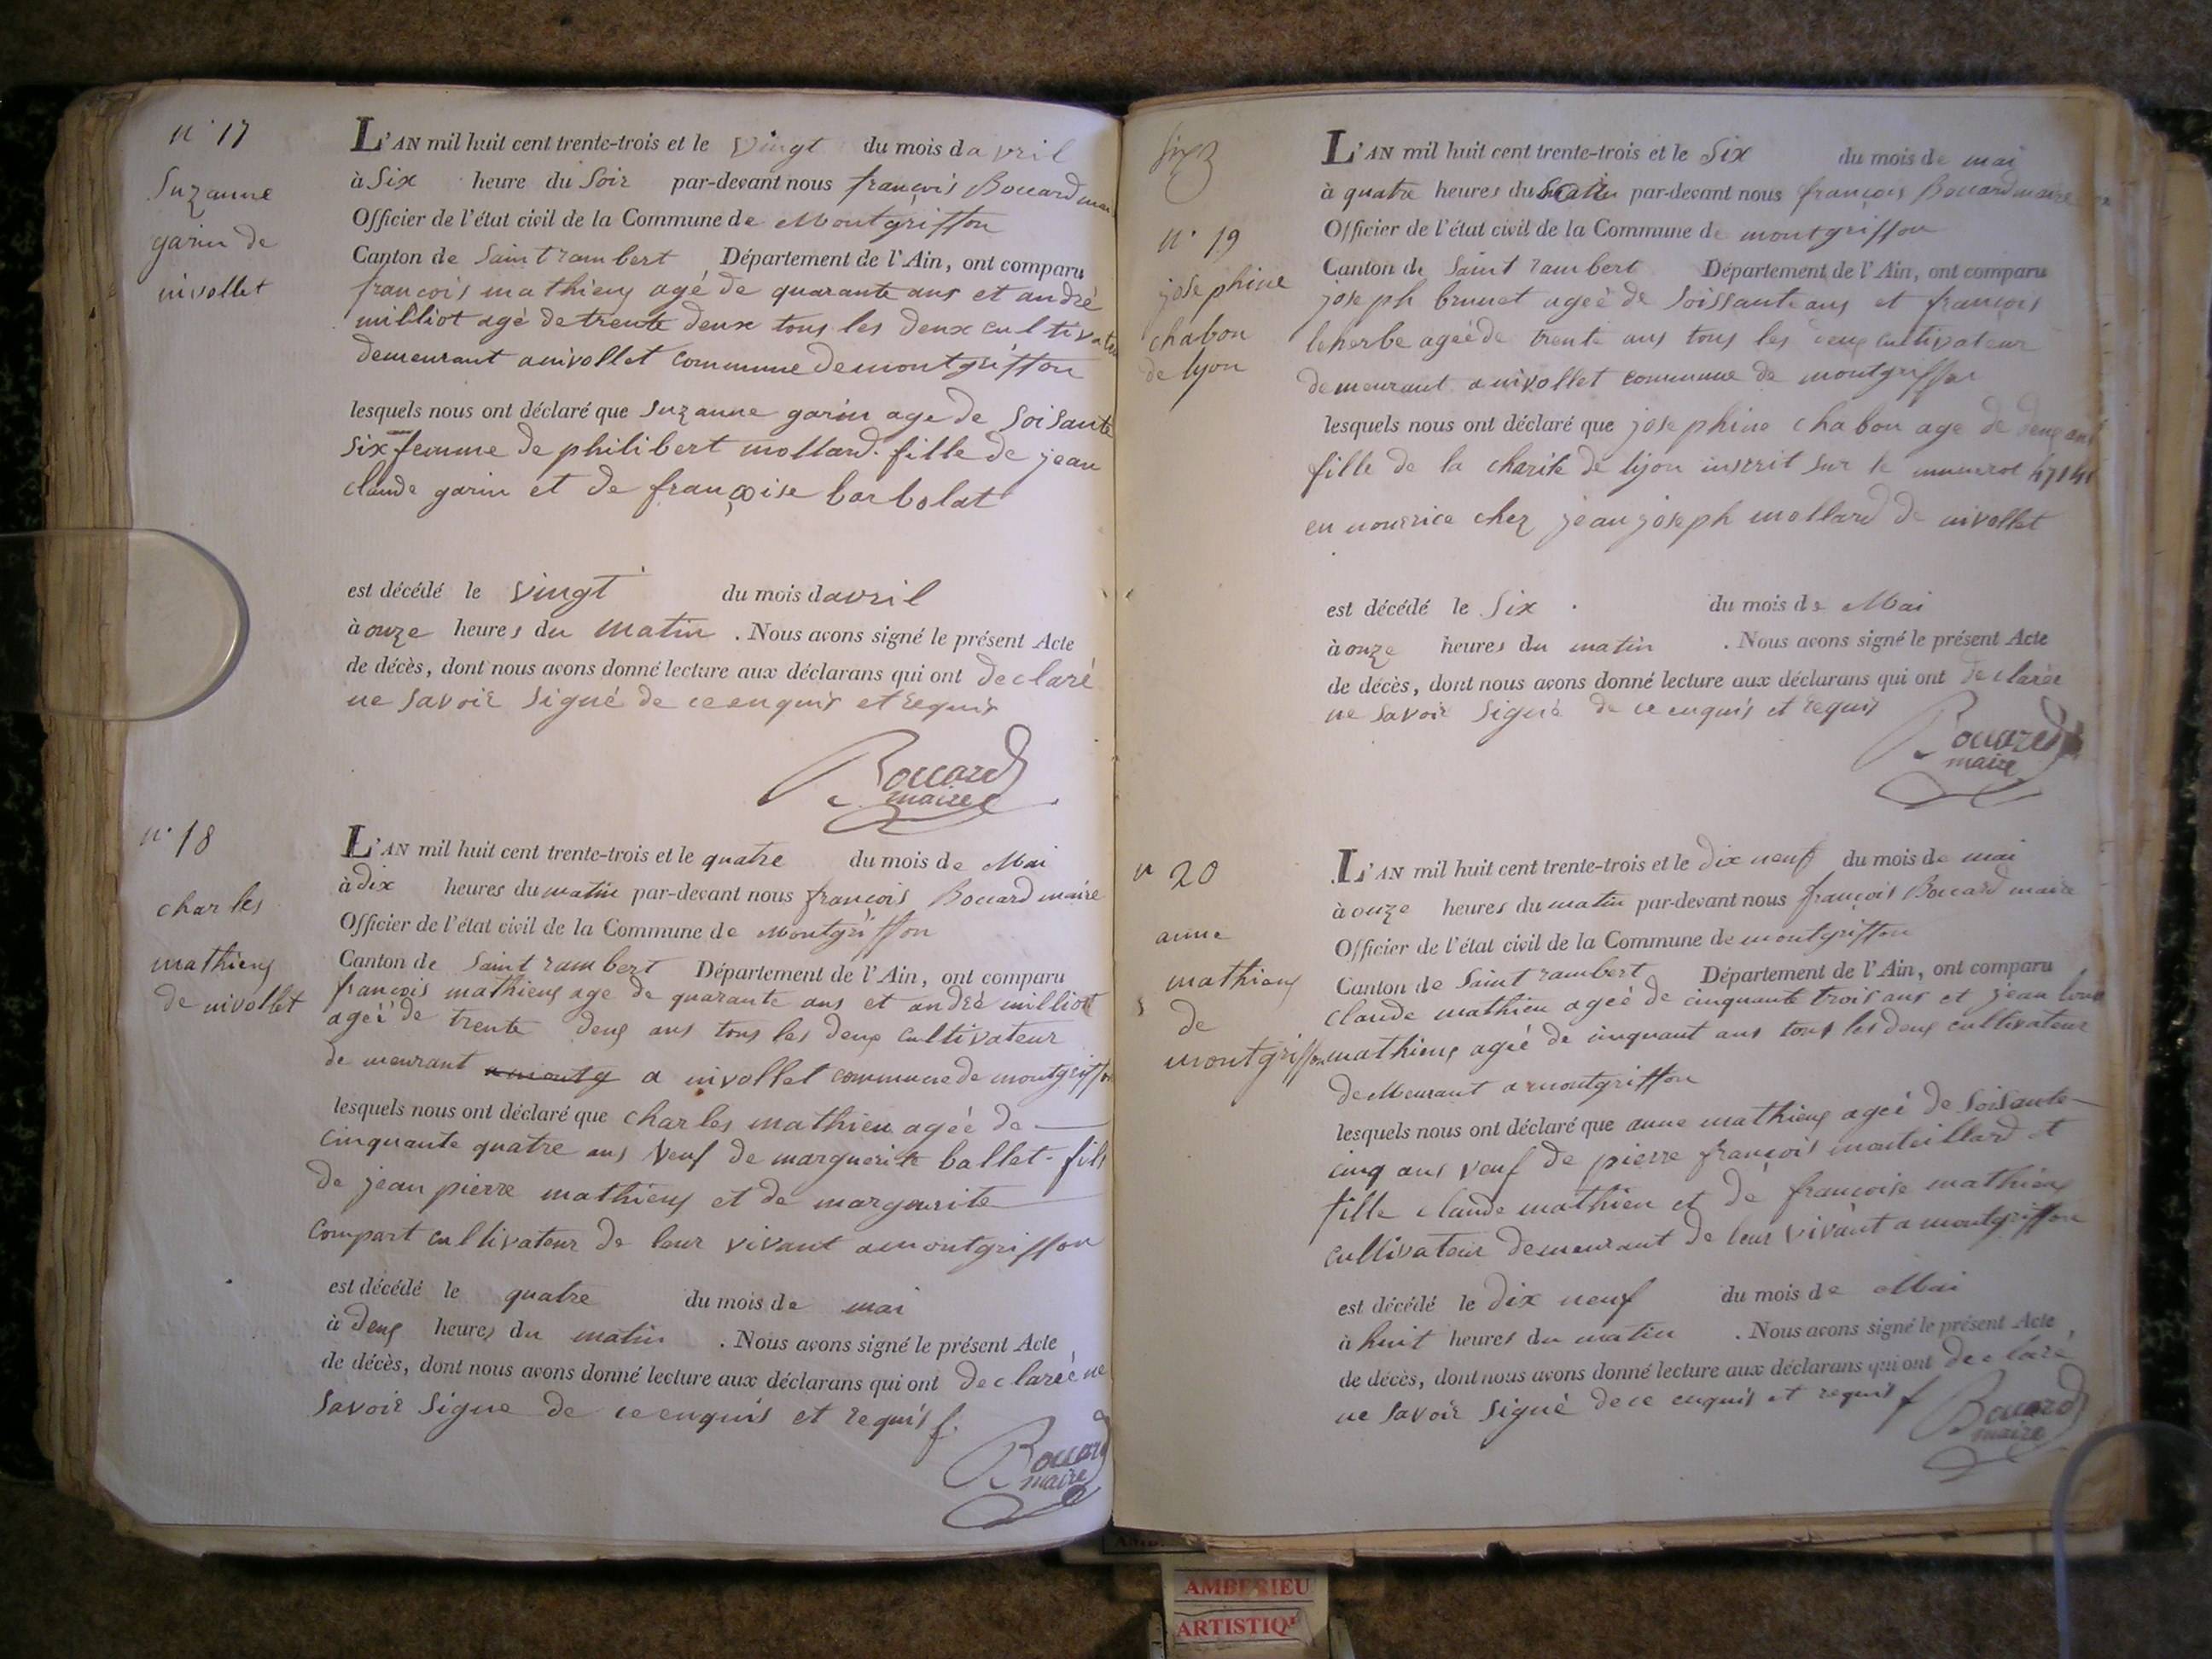 n° 17
Suzanne
garin de
nivollet
L'AN mil huit cent trente-trois et le Vingt du mois davril
à Six heure du Soir par-devant nous françois Boccard mai
Officier de l'état civil de la Commune de Montgriffon
Canton de Saint rambert Département de l'Ain, ont comparu
françois mathieux agé de quarante ans et andré
milliot agé de trente deux tous les deux cultivateu
demeurant a nivollet commune de montgriffon
lesquels nous ont déclaré que Suzanne garin age de Soisante
Six femme de philibert mollard fille de jean
claude garin et de françoise barbolat
est décédé le vingt du mois davril
à onze heures du matin . Nous avons signé le présent Acte
de décès, dont nous avons donné lecture aux déclarans qui ont declaré
ne Savoir Signé de ce enquis et requis
Boccard
maire
n° 18
charles
mathieux
de nivollet
L'AN mil huit cent trente-trois et le quatre du mois de Mai
à dix heures du matin par-devant nous françois Boccard maire
Officier de l'état civil de la Commune de Montgriffon
Canton de Saint rambert Département de l'Ain, ont comparu
françois mathieux age de quarante ans et andré milliot
ageé de trente deux ans tous les deux cultivateur
de meurant a montg a nivollet commune de montgriffon
lesquels nous ont déclaré que charles mathieu ageé de
cinquante quatre ans Veuf de marguerite ballet fils
de jean pierre mathieux et de marguerite
compart cultivateur de leur vivant a montgriffon
est décédé le quatre du mois de mai
à deux heures du matin . Nous avons signé le présent Acte
de décès, dont nous avons donné lecture aux déclarans qui ont declareé ne
Savoir Signe de ce enquis et requis f.
Boccard
maire
n° 19
josephine
chabon
de lyon
L'AN mil huit cent trente-trois et le Six du mois de mai
à quatre heures du par-devant nous françois Boccard maire
Officier de l'état civil de la Commune de montgriffon
Canton de Saint rambert Département de l'Ain, ont comparu
joseph brunet ageé de Soissante ans et françois
leherbe ageé de trente ans tous les deux cultivateur
demeurant a nivollet commune de montgriffon
lesquels nous ont déclaré que josephine chabon age de deux ans
fille de la charite de lyon inscrit Sur le numerot
en nourrice chez jean joseph mollard de nivollet
est décédé le Six du mois de Mai
à onze heures du matin . Nous avons signé le présent Acte
de décès, dont nous avons donné lecture aux déclarans qui ont declarée
ne Savoir Signé de ce enquis et requis
Boccard
maire
n 20
anne
mathieux
de
montgriffon
L'AN mil huit cent trente-trois et le dix neuf du mois de mai
à onze heures du matin par-devant nous françois Boccard maire
Officier de l'état civil de la Commune de montgriffon
Canton de Saint rambert Département de l'Ain, ont comparu
claude mathieu ageé de cinquante trois ans et jean
mathieux ageé de cinquant ans tous les deux cultivateur
demeurant a montgriffon
lesquels nous ont déclaré que anne mathieux ageé de Soisante
cinq ans veuf de pierre françois monteillard et
fille claude mathieu et de françoise mathieux
cultivateur demeurant de leur vivant a montgriffon
est décédé le dix neuf du mois de Mai
à huit heures du matin . Nous avons signé le présent Acte
de décès, dont nous avons donné lecture aux déclarans qui ont declaré
ne Savoir Signé de ce enquis et requis f
Boccard
maire
AMBERIEU
ARTISTIQU